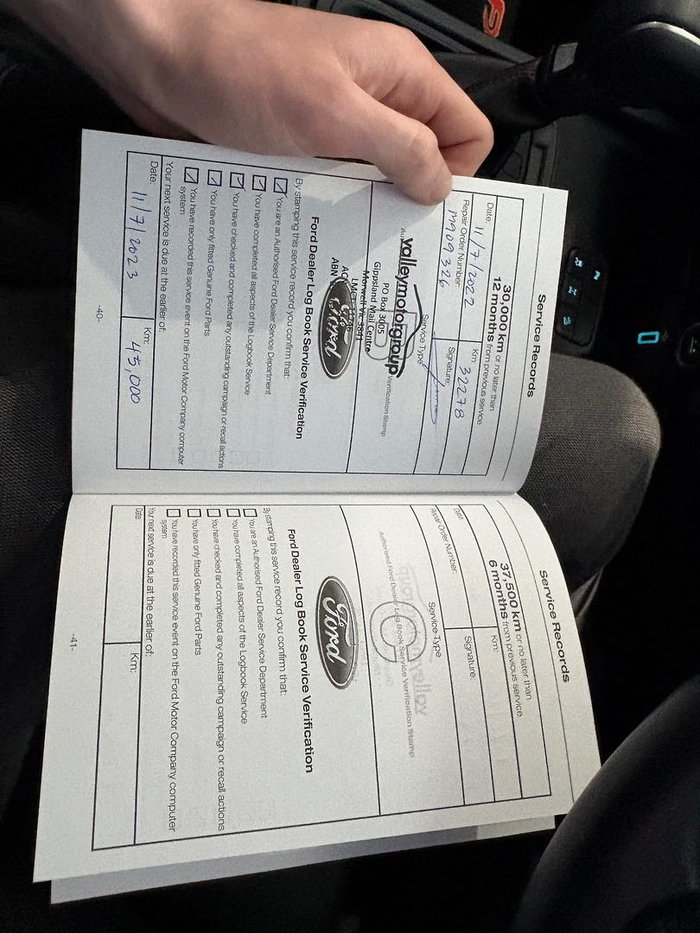 Service Records
30,000 km or no later than
12 months from previous service
Date: 11/7/2022
Km: 32278
Repair Order Number:
Signature:
Service Type
valleymotorgroup
Verification Stamp
PO Box 3005
Gippsland Mail Centre
Ford
Ford Dealer Log Book Service Verification
By stamping this service record you confirm that:
You are an Authorised Ford Dealer Service Department
You have completed all aspects of the Logbook Service
You have checked and completed any outstanding campaign or recall actions
You have only fitted Genuine Ford Parts
You have recorded this service event on the Ford Motor Company computer
system
Your next service is due at the earlier of:
Date: 11/7/2023
Km: 45,000
-40-
Service Records
37,500 km or no later than
6 months from previous service
Date:
Km:
Repair Order Number:
Signature:
Service Type
C
Authorised Ford Dealer Log Book Service Verification Stamp
Ford
Ford Dealer Log Book Service Verification
By stamping this service record you confirm that:
You are an Authorised Ford Dealer Service Department
You have completed all aspects of the Logbook Service
You have checked and completed any outstanding campaign or recall actions
You have only fitted Genuine Ford Parts
You have recorded this service event on the Ford Motor Company computer
system
Your next service is due at the earlier of:
Date:
Km:
-41-